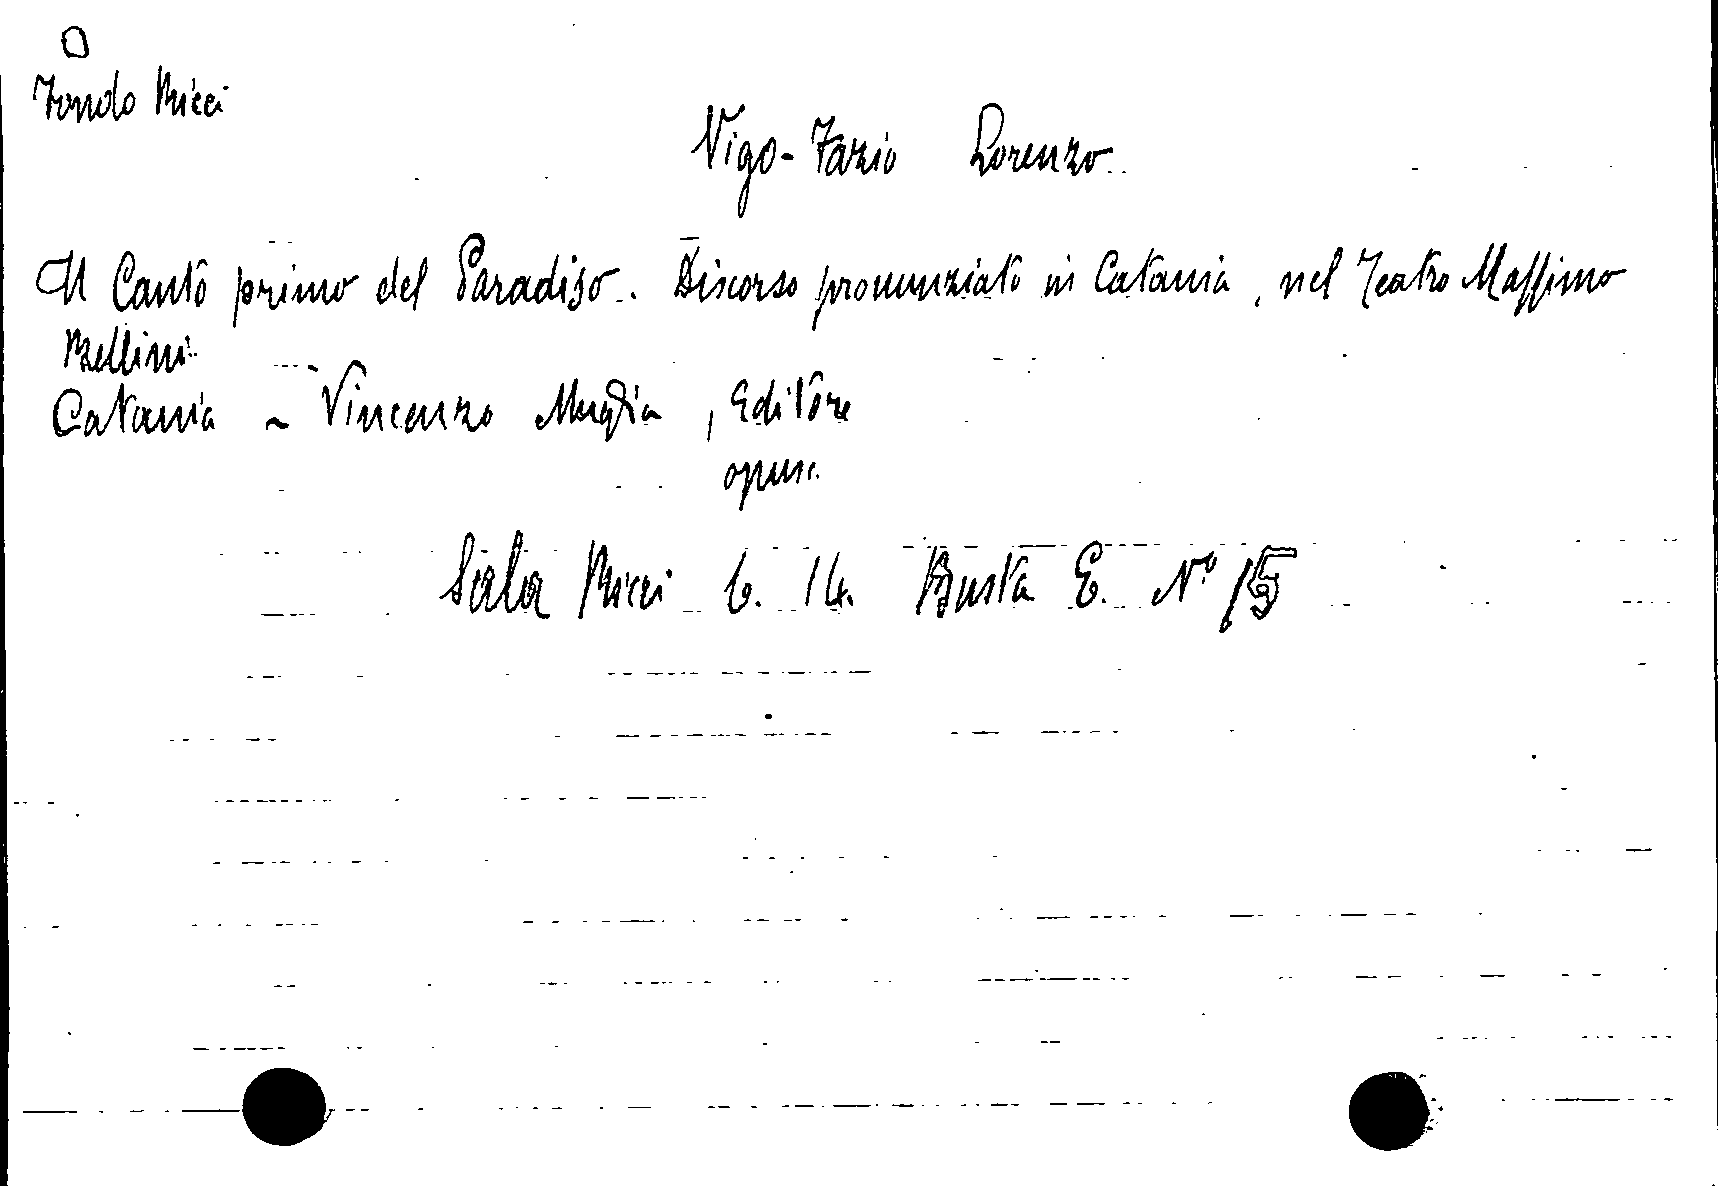 Fondo Ricci
Vigo-Fazio Lorenzo
Il Canto primo del Paradiso. Discorso pronunziato in Catania, nel Teatro Massimo
Bellini
Catania - Vincenzo Muglia, Editore
opusc.
Sala Ricci 6. 14. Busta E. N° 15